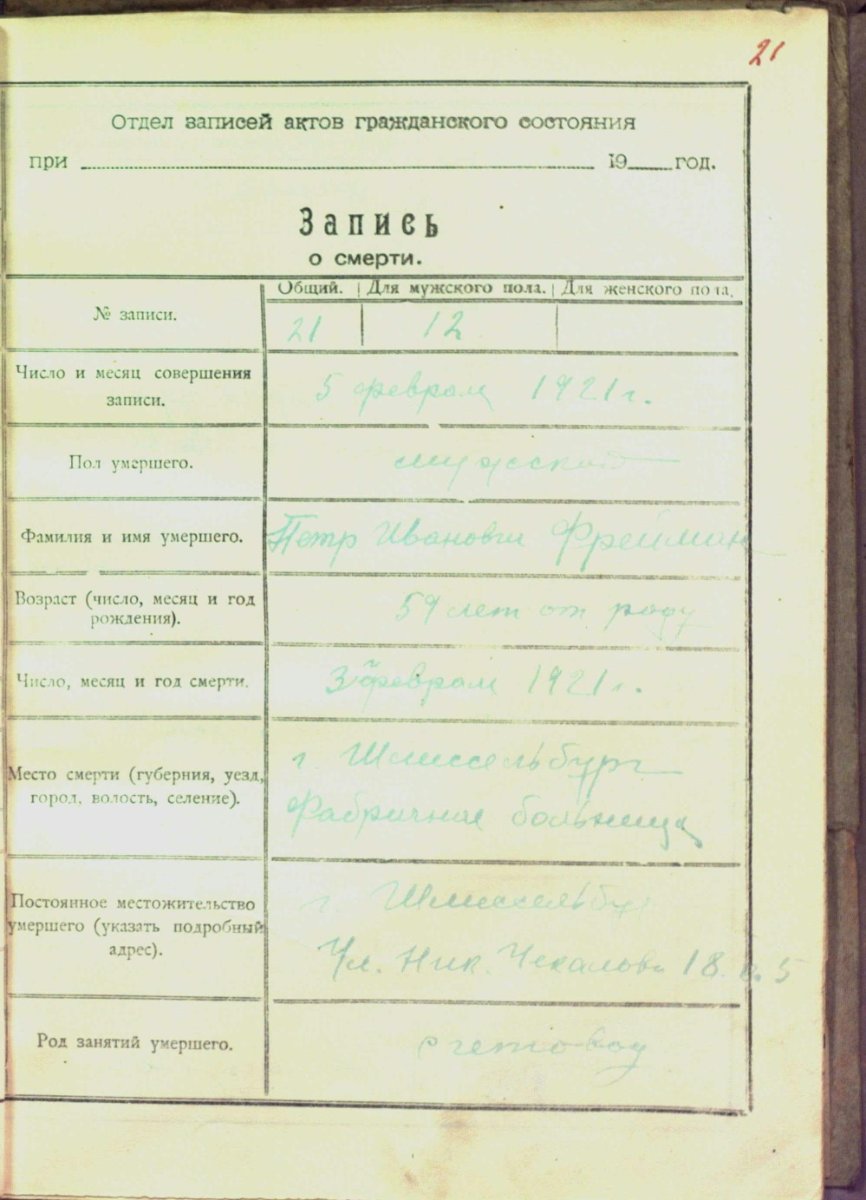 21
Отдел записей актов гражданского состояния
при 19 год.
Запись
о смерти.
№ записи.
Общий. Для мужского пола. Для женского пола.
21 12
Число и месяц совершения
записи.
5 февраля 1921 г.
Пол умершего.
мужской
Фамилия и имя умершего.
Петр Иванович Фрейман
Возраст (число, месяц и год
рождения).
59 лет от роду
Число, месяц и год смерти.
3го февраля 1921 г.
Место смерти (губерния, уезд,
город, волость, селение).
г. Шлиссельбург
Фабричная больница
Постоянное местожительство
умершего (указать подробный
адрес).
г. Шлиссельбург
Ул. Ник. Чекалова 18. 5
Род занятий умершего.
счетовод